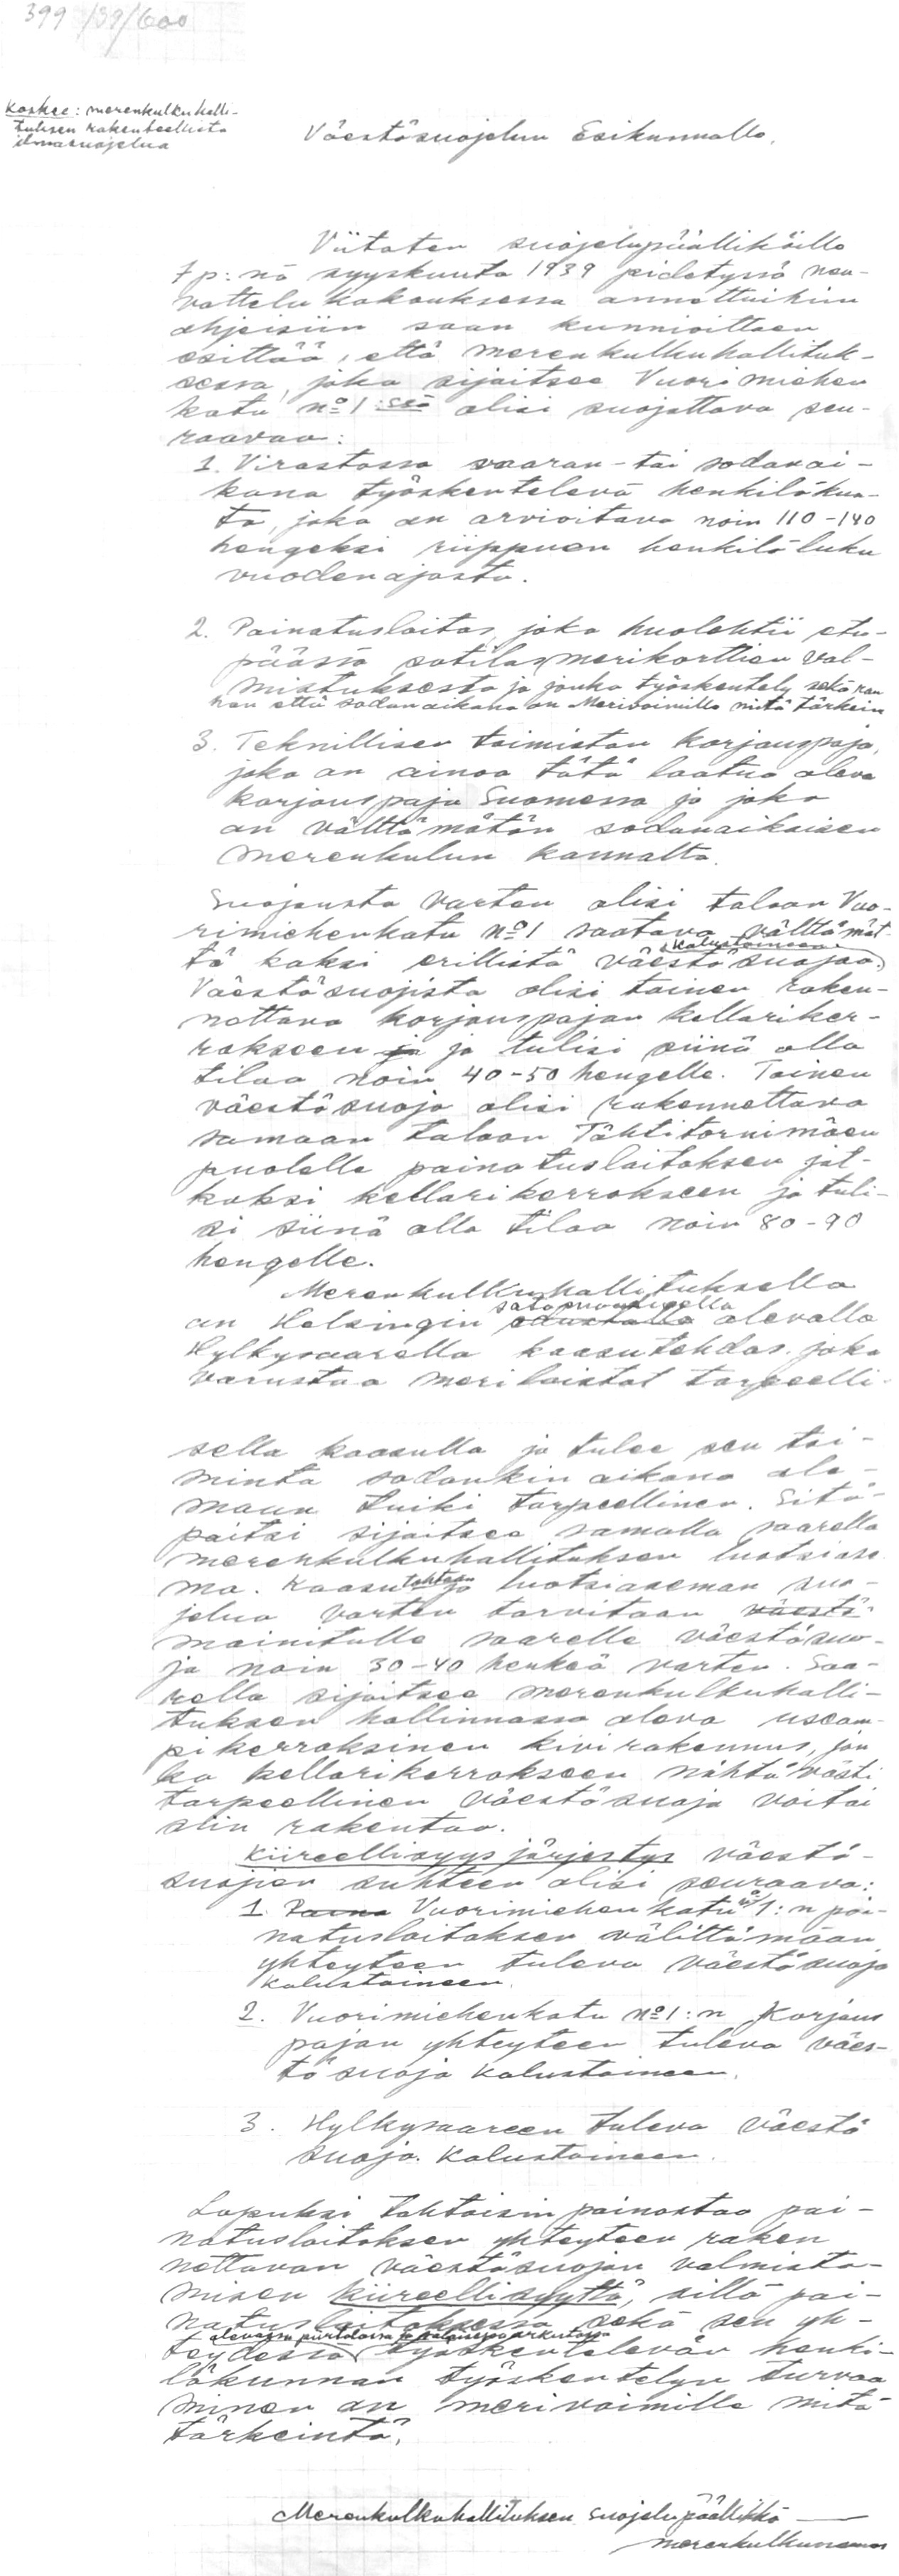 399/39/600
Koskee: merenkulkuhalli-
tuksen rakenteellista
ilmasuojelua
Väestösuojelun Esikunnalle.
Viitaten suojelupäälliköille
7 p:nä syyskuuta 1939 pidetyssä neu-
vottelukokouksessa annettuihin
ohjeisiin saan kunnioittaen
esittää, että merenkulkuhallituk-
sessa, joka sijaitsee Vuorimiehen
katu No 1:ssä olisi suojattava seu-
raavaa:
1. Virastossa vaaran- tai sodanai-
kana työskentelevä henkilökun-
ta, joka on arvioitava noin 110-140
hengeksi riippuen henkilöluku
vuodenajasta.
2. Painatuslaitos, joka huolehtii etu-
päässä sotilasmerikorttien val-
mistuksesta ja jonka työskentely sekä rau
han että sodanaikana on Merivoimille mitä tärkein
3. Teknillisen toimiston korjauspaja,
joka on ainoa tätä laatua oleva
korjauspaja Suomessa ja joka
on välttämätön sodanaikaisen
merenkulun kannalta.
Suojausta varten olisi taloon Vuo-
rimiehenkatu No 1 saatava välttämät-
tä kaksi erillistä väestösuojaa kalustoineen.
Väestösuojista olisi toinen raken-
nettava korjauspajan kellariker-
rokseen ja ja tulisi siinä olla
tilaa noin 40-50 hengelle. Toinen
väestösuoja olisi rakennettava
samaan taloon Tähtitornimäen
puolelle painatuslaitoksen jat-
koksi kellarikerrokseen ja tuli-
si siinä olla tilaa noin 80-90
hengelle.
Merenkulkuhallituksella
on Helsingin edustalla olevalla
Hylkysaarella kaasutehdas, joka
varustaa meriloistot tarpeelli-
sella kaasulla ja tulee sen toi-
minta sodankin aikana ole-
maan tuiki tarpeellinen. Sitä-
paitsi sijaitsee samalla saarella
merenkulkuhallituksen luotsiase
ma. Kaasutehtaan ja luotsiaseman suo-
jelua varten tarvitaan väestö-
mainitulle saarelle väestösuo-
ja noin 30-40 henkeä varten. Saa-
rella sijaitsee merenkulkuhalli-
tuksen hallinnassa oleva useam-
pikerroksinen kivirakennus, jon
ka kellarikerrokseen nähtävästi
tarpeellinen väestösuoja voitai
siin rakentaa.
Kiireellisyysjärjestys väestö-
suojien suhteen olisi seuraava:
1. Paina Vuorimiehenkatu No 1:n pai-
natuslaitoksen välittömään
yhteyteen tuleva väestösuoja
kalustoineen.
2. Vuorimiehenkatu No 1:n Korjaus
pajan yhteyteen tuleva väes-
tösuoja kalustoineen.
3. Hylkysaareen tuleva väestö
suoja kalustoineen.
Lopuksi tahtoisin painostaa pai-
natuslaitoksen yhteyteen raken
nettavan väestösuojan valmista-
misen kiireellisyyttä, sillä pai-
natuslaitoksessa sekä sen yh-
teydessä työskentelevän henki-
lökunnan työskentelyn turvaa
minen on merivoimille mitä
tärkeintä.
Merenkulkuhallituksen suojelupäällikkö
merenkulkuneuvos